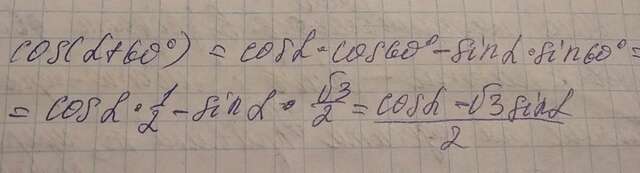 cos(α+60°) = cosα·cos60°-sinα·sin60°=
= cosα·1/2-sinα·√3/2=(cosα-√3sinα)/2